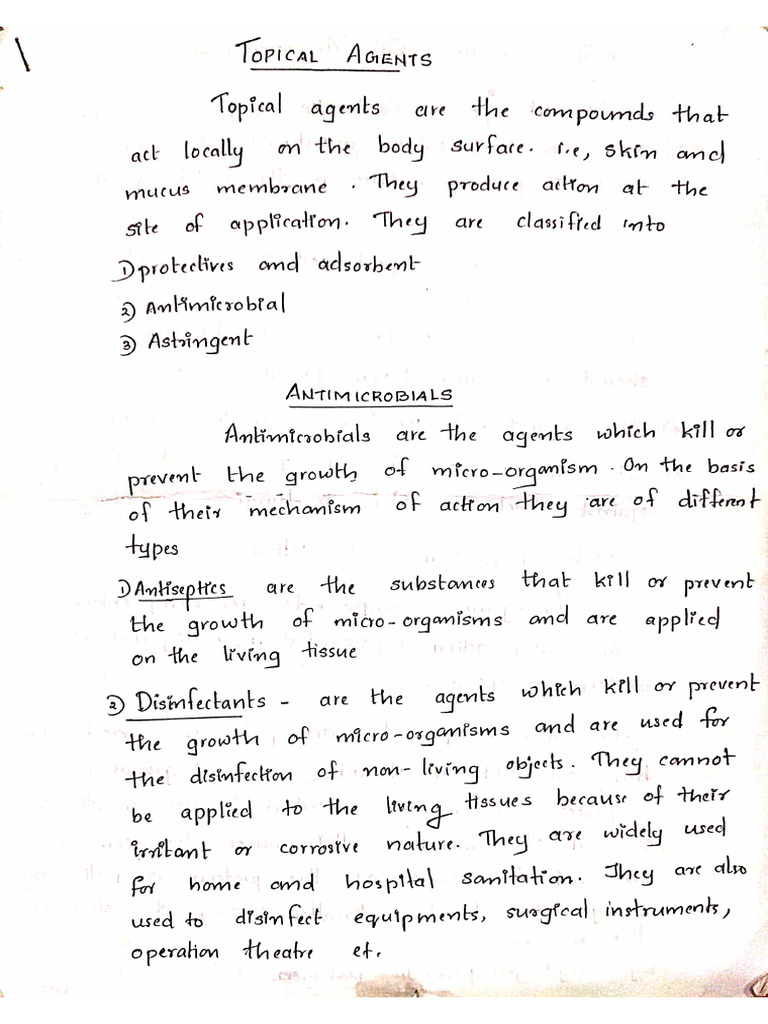 TOPICAL AGENTS
Topical agents are the compounds that
act locally on the body surface. i.e, skin and
mucus membrane. They produce action at the
site of application. They are classified into
1) protectives and adsorbent
2) Antimicrobial
3) Astringent
ANTIMICROBIALS
Antimicrobials are the agents which kill or
prevent the growth of micro-organism. On the basis
of their mechanism of action they are of different
types
1) Antiseptics are the substances that kill or prevent
the growth of micro-organisms and are applied
on the living tissue
2) Disinfectants - are the agents which kill or prevent
the growth of micro-organisms and are used for
the disinfection of non-living objects. They cannot
be applied to the living tissues because of their
irritant or corrosive nature. They are widely used
for home and hospital sanitation. They are also
used to disinfect equipments, surgical instruments,
operation theatre et.